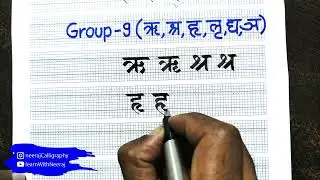 Group-9 (ऋ, श्र, हृ, लृ, घ, ञ)
ऋ ऋ श्र श्र
हृ हृ
neerajCalligraphy
learnWithNeeraj